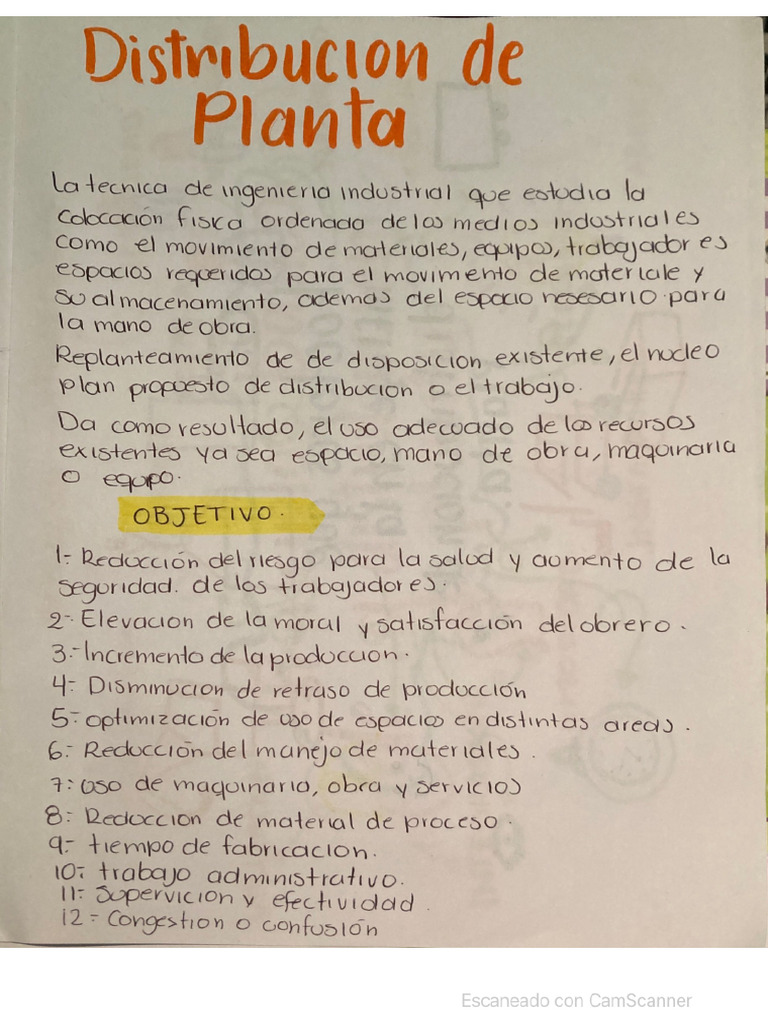 Distribucion de
Planta
La tecnica de ingenieria industrial que estudia la
colocación fisica ordenada de los medios industriales
como el movimiento de materiales, equipos, trabajadores
espacios requeridos para el movimento de materiale y
su almacenamiento, ademas del espacio nesesario para
la mano de obra.
Replanteamiento de de disposicion existente, el nucleo
plan propuesto de distribucion o el trabajo.
Da como resultado, el uso adecuado de los recursos
existentes ya sea espacio, mano de obra, maquinaria
o equpo.
OBJETIVO.
1- Reducción del riesgo para la salud y aumento de la
seguridad. de los trabajadores.
2- Elevacion de la moral y satisfacción del obrero.
3.- Incremento de la produccion.
4- Disminucion de retraso de producción
5- optimización de uso de espacios en distintas areas.
6- Reducción del manejo de materiales.
7- uso de maquinaria, obra y servicios
8- Reduccion de material de proceso.
9- tiempo de fabricacion.
10- trabajo administrativo.
11- Supervicion y efectividad.
12- Congestion o confusión
Escaneado con CamScanner